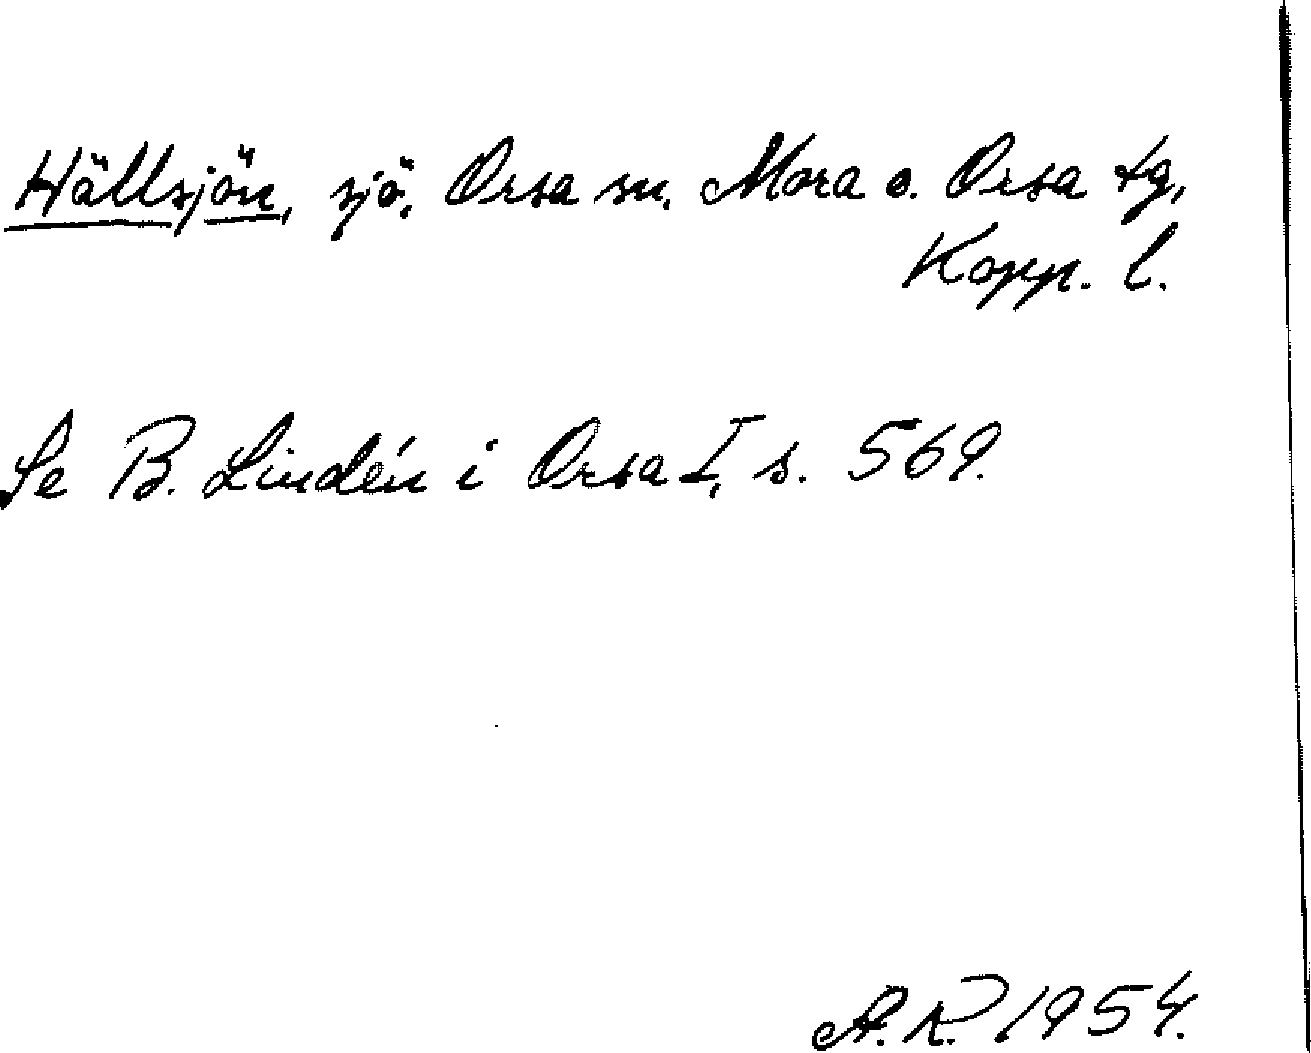 Hällsjön, sjö, Orsa sn, Mora o. Orsa tg,
Kopp. l.
Se B. Lindén i Orsa I, s. 569.
A.R. 1954.